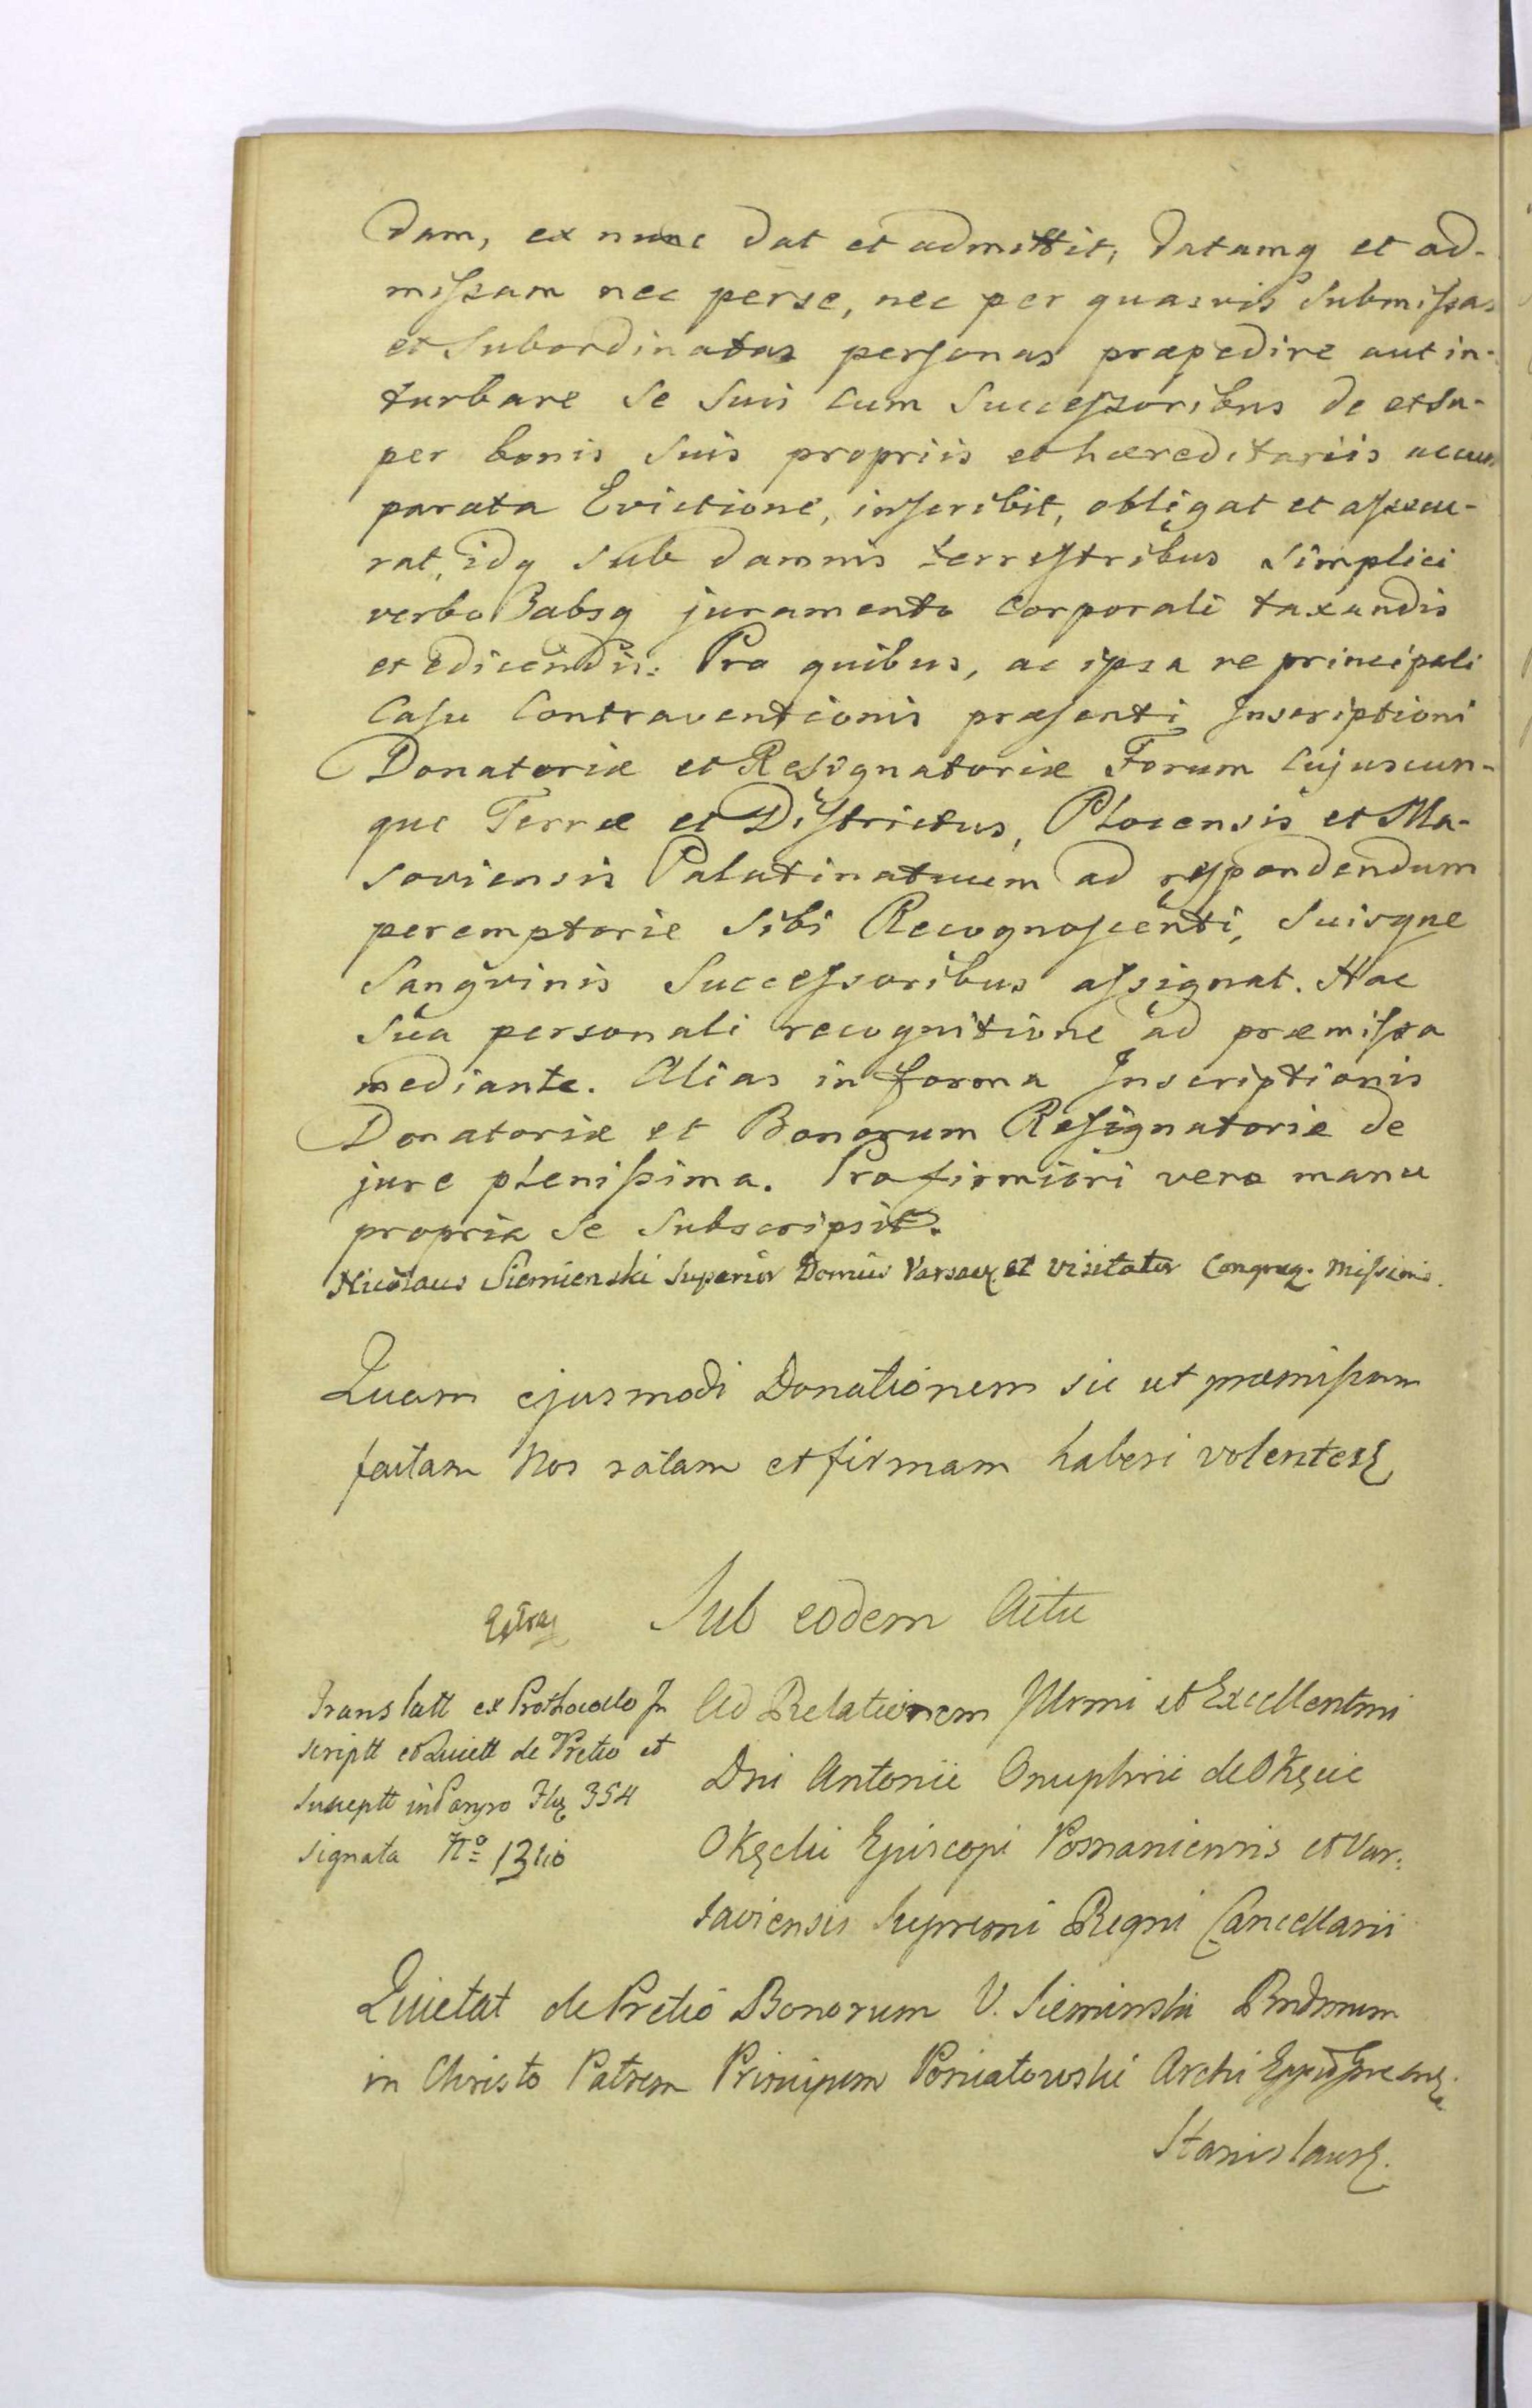 dam, ex nunc dat et admittit, datamq et ad-
missam nec per se, nec per quasvis Submissas
et Subordinatas personas præpedire aut in-
turbare se suis cum Successoribus de et su-
per bonis suis propriis et hæreditariis accum
parata Evictione, inscribit, obligat et assecu-
rat, idq sub damnis terrestribus simplici
verbo absq juramento corporali taxandis
et edicendis. Pro quibus, ac ipsa re principali
Casu Contraventionis præsenti Inscriptioni
Donatoriæ et Resignatoriæ Forum cujuscun-
que Terræ et Districtus, Plocensis et Ma-
soviensis Palatinatuum ad respondendum
peremptorie sibi Recognoscenti, suisque
Sangvinis Successoribus assignat. Hac
sua personali recognitione ad præmissa
mediante. Alias in forma Inscriptionis
Donatoriæ et Bonorum Resignatoriæ de
jure plenissima. Pro firmiori vero manu
propria se subscripsit.
Nicolaus Siemienski Superior Domus Varsav et Visitator Congreg. Missionis.
Quam ejusmodi Donationem sic ut præmissum
factam Nos ratam et firmam haberi volentes
Sub eodem Actu
Translatt ex Prothocollo In
scriptt et Quiett de Pretio et
Susceptt in Pargo 354
signata No 13tio
Ad Relationem Illrmi et Excellentmi
Dni Antonii Onuphrii de Okęcie
Okęcki Episcopi Posnaniensis et Var:
saviensis Supremi Regni Cancellarii
Quietat de Pretio Bonorum V. Sieminski Rndmum
in Christo Patrem Principem Poniatowski Archi
Stanislaus